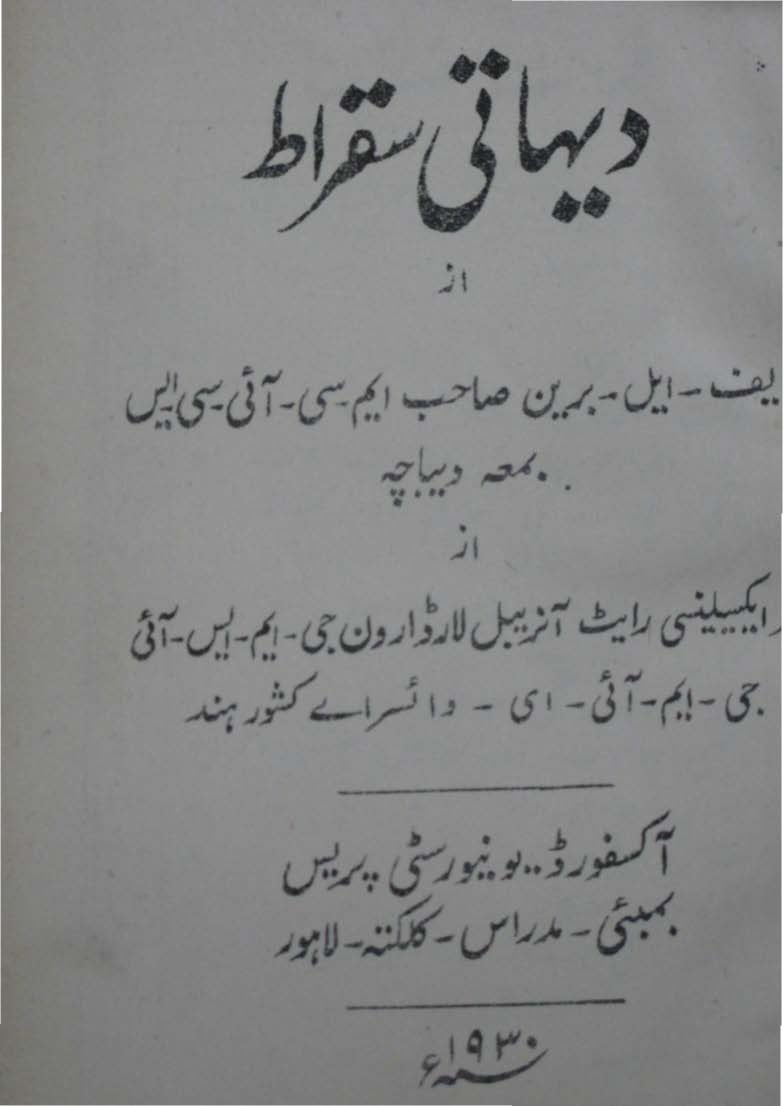 دیہاتی سقراط
از
یف - ایل - برین صاحب ایم - سی - آئی - سی - ایس
بمعہ دیباچہ
از
ایکسیلینسی رایٹ آنریبل لارڈ ارون جی - ایم - ایس - آئی
جی - ایم - آئی - ای - وائسراے کشور ہند
آکسفورڈ یونیورسٹی پریس
بمبئی - مدراس - کلکتہ - لاہور
سنہ ۱۹۳۰ء